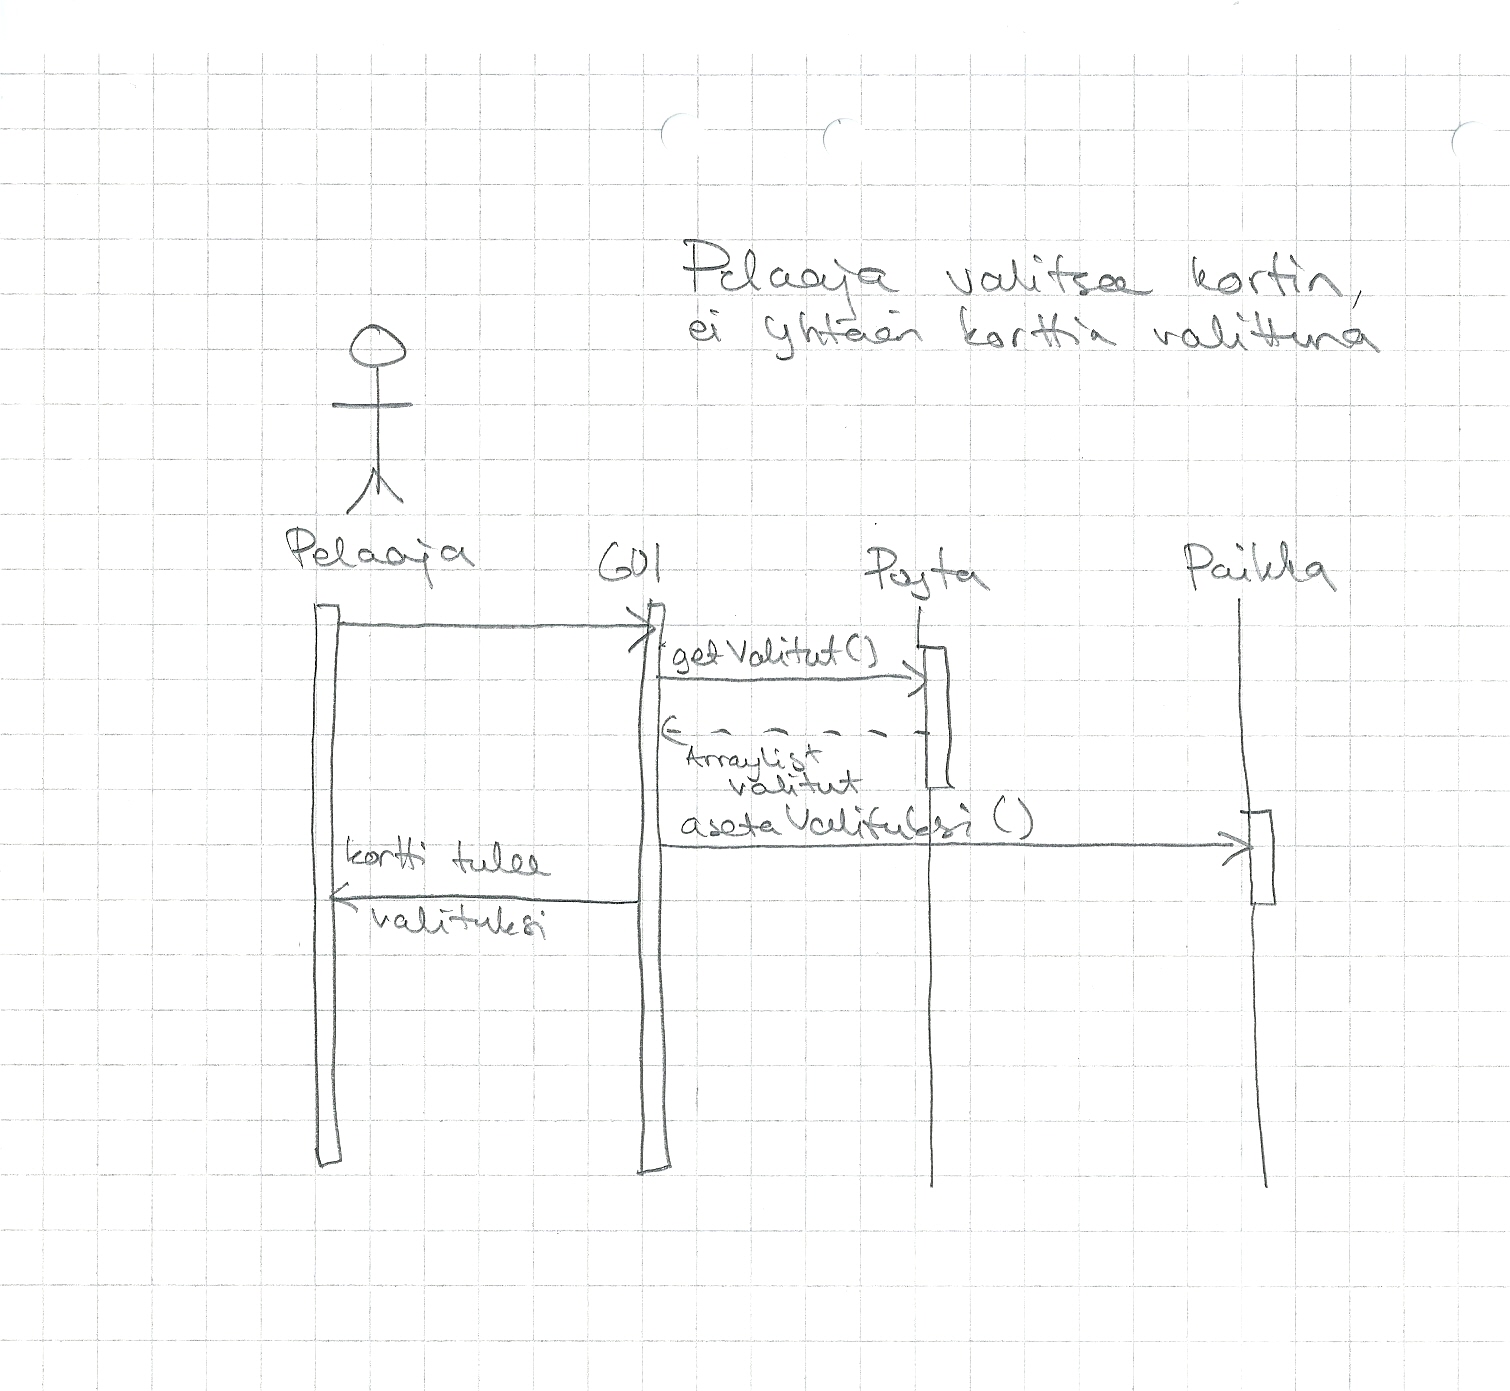 Pelaaja valitsee kortin,
ei yhtään korttia valittuna
Pelaaja
GUI
Pöytä
Paikka
getValitut()
ArrayList
valitut
asetaValituksi()
kortti tulee
valituksi